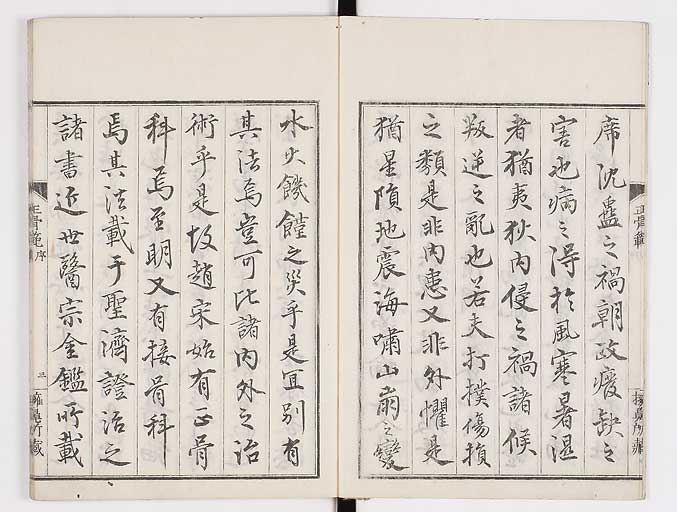 席沈蠱之禍朝政癈缺之
害也病之得於風寒暑濕
者猶夷狄内侵之禍諸候
叛逆之亂也若夫打撲傷損
之類是非内患又非外懼是
猶星隕地震海嘯山崩之變
正骨範序
三
水火饑饉之災乎是宜別有
其法焉豈可比諸内外之治
術乎是故趙宋始有正骨
科焉至明又有接骨科
焉其法載于聖濟證治之
諸書近世醫宗金鑑所載